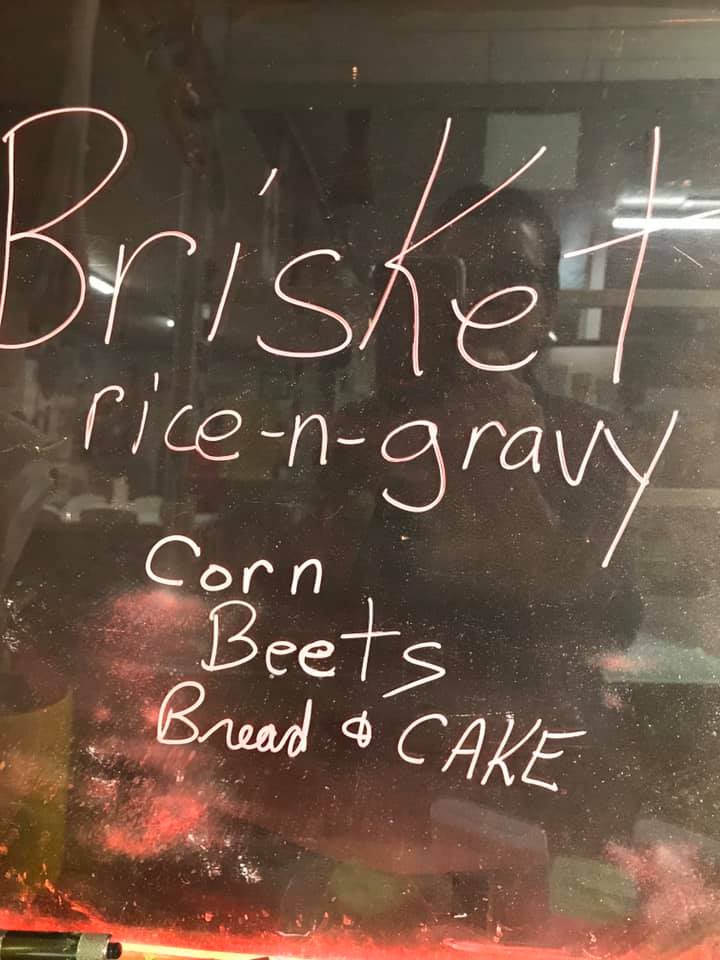 Brisket
rice-n-gravy
Corn
Beets
Bread & CAKE